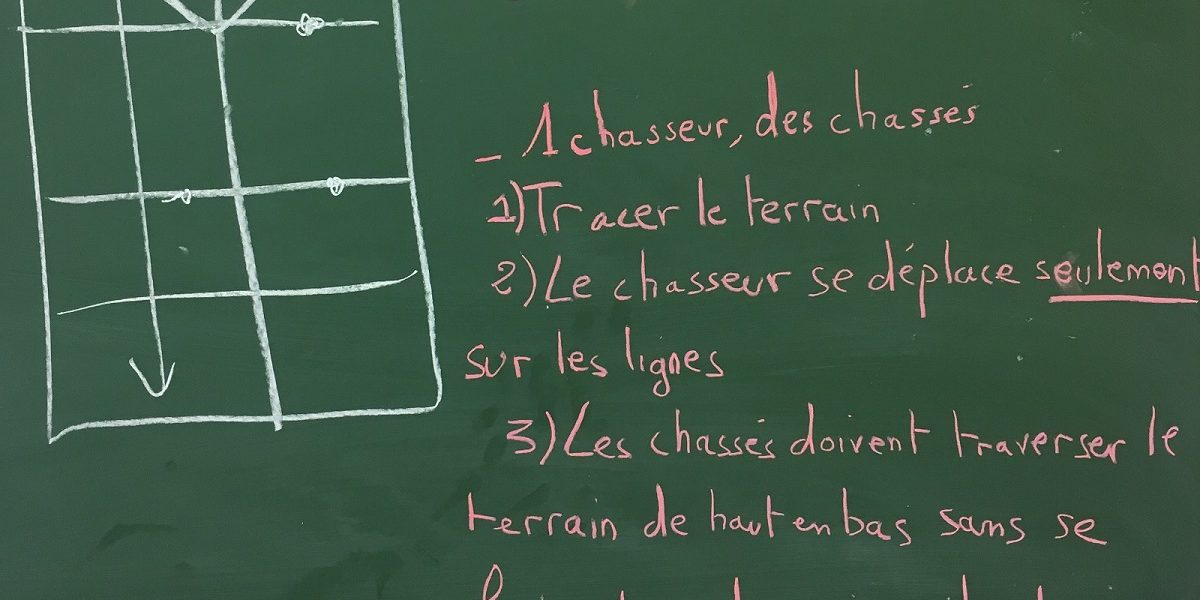 - 1 chasseur, des chassés
1) Tracer le terrain
2) Le chasseur se déplace seulement
sur les lignes
3) Les chassés doivent traverser le
terrain de haut en bas sans se